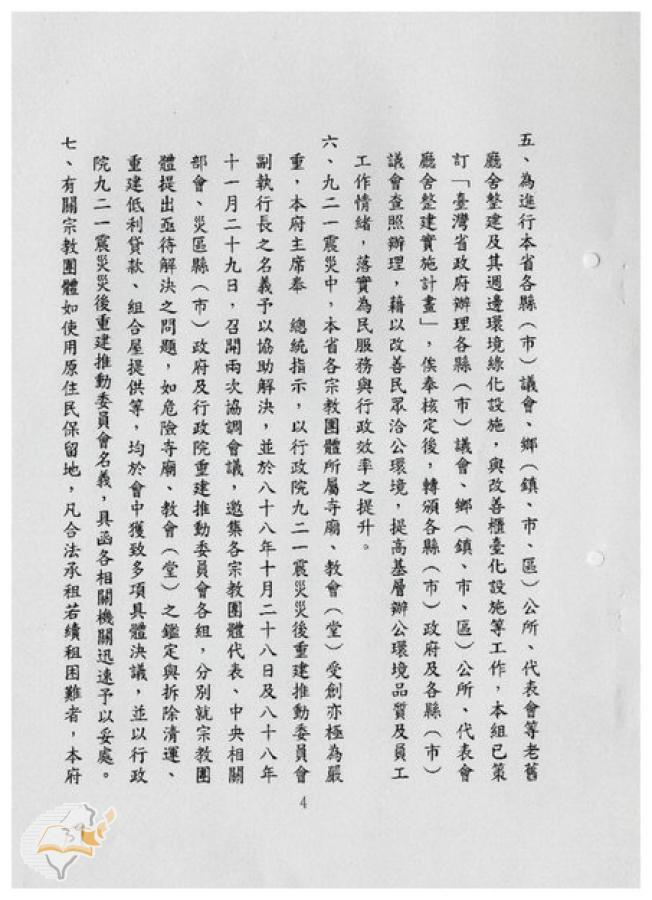 五、為進行本省各縣（市）議會、鄉（鎮、市、區）公所、代表會等老舊
廳舍整建及其週邊環境綠化設施，與改善櫃臺化設施等工作，本組已策
訂「臺灣省政府辦理各縣（市）議會、鄉（鎮、市、區）公所、代表會
廳舍整建實施計畫」，俟奉核定後，轉頒各縣（市）政府及各縣（市）
議會查照辦理，藉以改善民眾洽公環境，提高基層辦公環境品質及員工
工作情緒，落實為民服務與行政效率之提升。
六、九二一震災中，本省各宗教團體所屬寺廟、教會（堂）受創亦極為嚴
重，本府主席奉　總統指示，以行政院九二一震災災後重建推動委員會
副執行長之名義予以協助解決，並於八十八年十月二十八日及八十八年
十一月二十九日，召開兩次協調會議，邀集各宗教團體代表、中央相關
部會、災區縣（市）政府及行政院重建推動委員會各組，分別就宗教團
體提出亟待解決之問題，如危險寺廟、教會（堂）之鑑定與拆除清運、
重建低利貸款、組合屋提供等，均於會中獲致多項具體決議，並以行政
院九二一震災災後重建推動委員會名義，具函各相關機關迅速予以妥處。
七、有關宗教團體如使用原住民保留地，凡合法承租若續租困難者，本府
4